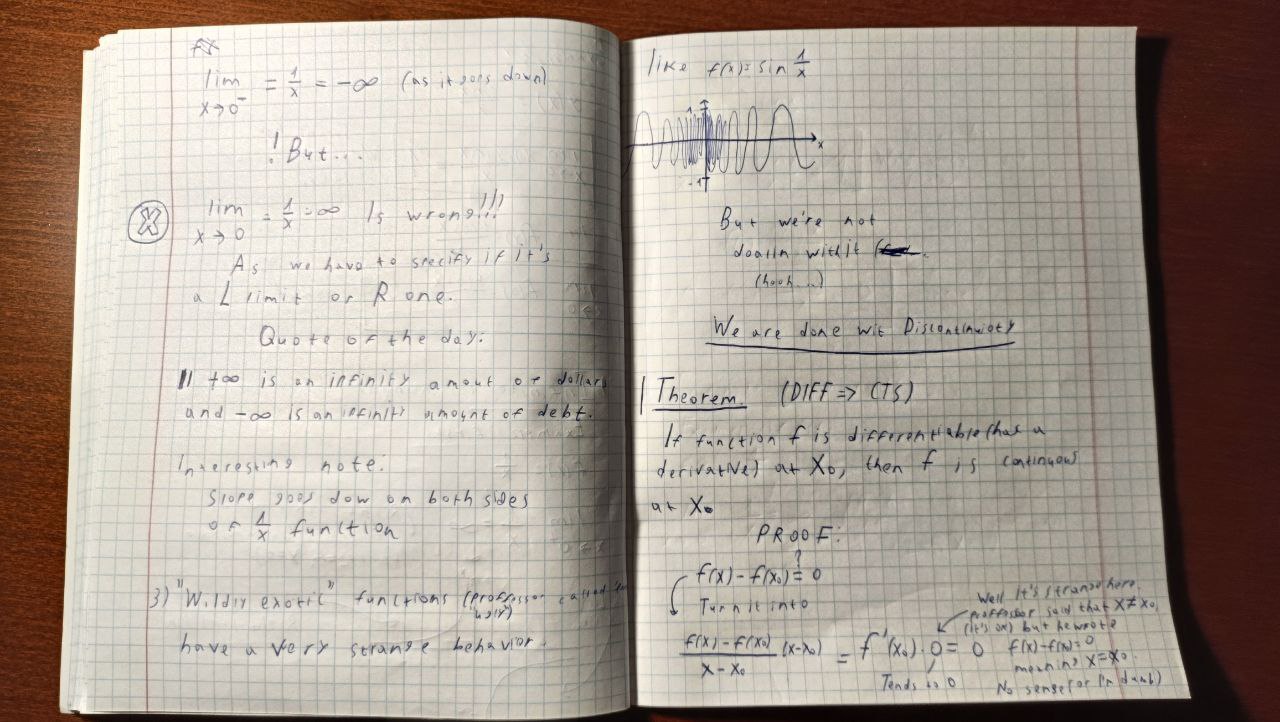 lim = 1/x = -∞ (as it goes down)
x→0⁻
! But...
lim = 1/x = ∞ Is wrong!!!
x→0
As we have to specify if it's
a L limit or R one.
Quote of the day:
" +∞ is an infinity amout of dollars
and -∞ is an infinity amount of debt.
Interesting note:
Slope goes dow on both sides
of 1/x function
3) "Wildly exotic" functions (proffessor called 'em
have a very strange behavior.
like f(x) = sin 1/x
1
x
-1
But we're not
dealin with it
(hooh...)
We are done wit Discontinuioty
Theorem. (DIFF => CTS)
If function f is differentiable (has a
derivative) at X₀, then f is continuous
at X₀
PROOF:
?
f(x) - f(x₀) = 0
Turn it into
f(x) - f(x₀) / x - x₀ (x-x₀) = f'(x₀) · 0 = 0
Tends to 0
Well it's strange here,
proffesor said that x≠x₀,
(it's ok) but he wrote
f(x)-f(x₀)=0
meaning x=x₀.
No sense (or I'm dumb)